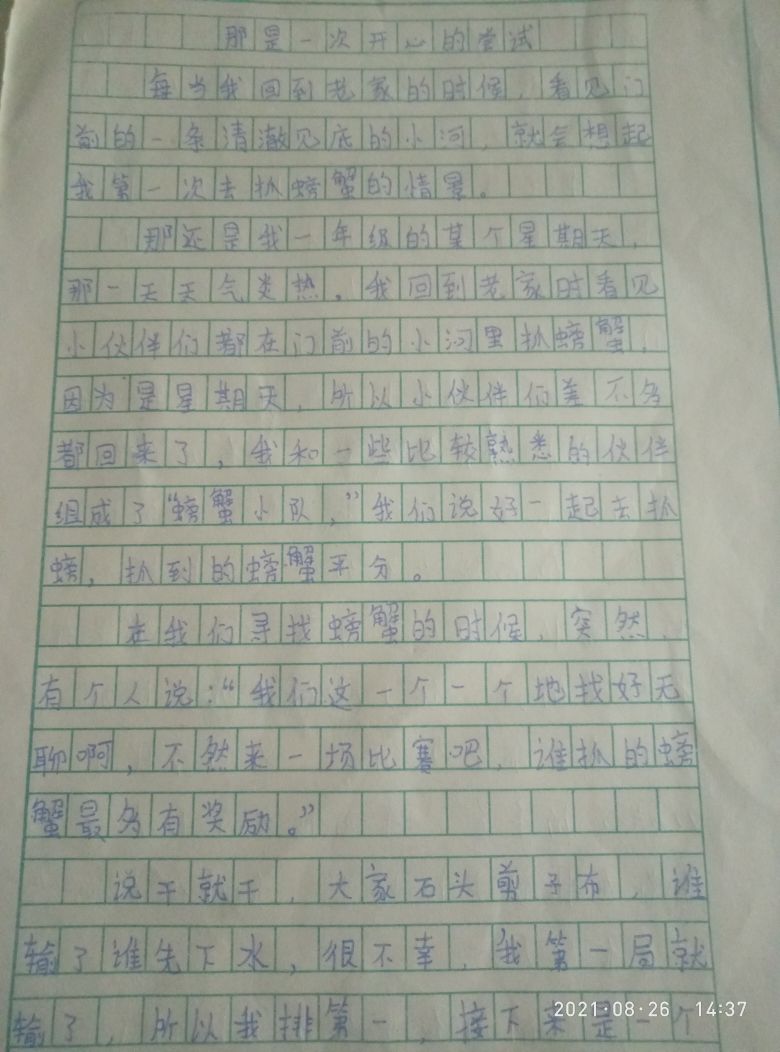 那是一次开心的尝试
每当我回到老家的时候，看见门
前的一条清澈见底的小河，就会想起
我第一次去抓螃蟹的情景。
那还是我一年级的某个星期天，
那一天天气炎热，我回到老家时看见
小伙伴们都在门前的小河里抓螃蟹，
因为是星期天，所以小伙伴们差不多
都回来了，我和一些比较熟悉的伙伴
组成了“螃蟹小队，”我们说好一起去抓
螃，抓到的螃蟹平分。
在我们寻找螃蟹的时候，突然，
有个人说：“我们这一个一个地找好无
聊啊，不然来一场比赛吧，谁抓的螃
蟹最多有奖励。”
说干就干，大家石头剪子布，谁
输了谁先下水，很不幸，我第一局就
输了，所以我排第一，接下来是一个
2021·08·26 14:37